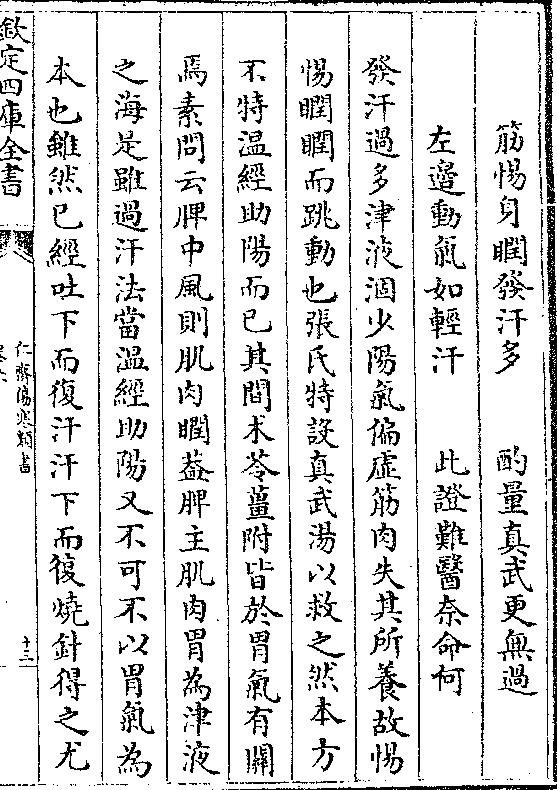 筋惕身瞤發汗多　酌量真武更無過
左邉動氣如輕汗　此證難醫奈命何
發汗過多津液涸少陽氣偏虚筋肉失其所養故惕
惕瞤瞤而跳動也張氏特設真武湯以救之然本方
不特温經助陽而已其間术苓薑附皆於胃氣有闗
焉素問云脾中風則肌肉瞤葢脾主肌肉胃為津液
之海是雖過汗法當温經助陽又不可不以胃氣為
本也雖然已經吐下而復汗汗下而復燒針得之尤
欽定四庫全書
仁齋傷寒類書
十二